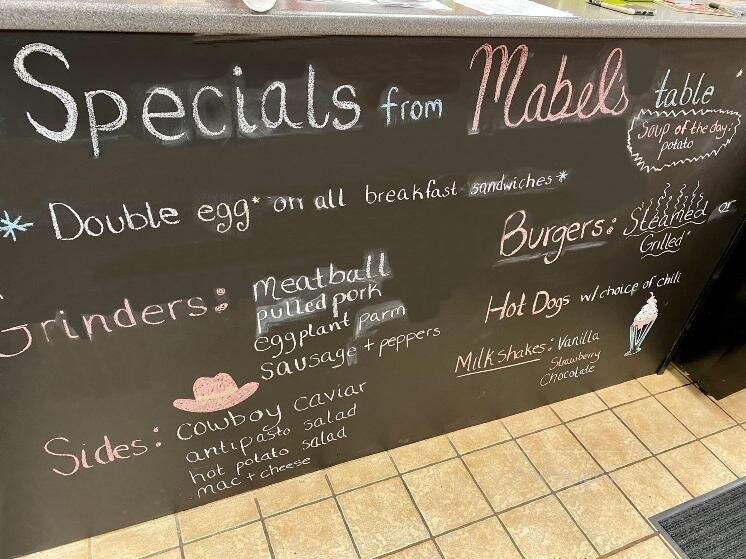 Specials from Mabel's table
Soup of the day:
potato
* Double egg* on all breakfast sandwiches*
Grinders: meatball
pulled pork
eggplant parm
sausage + peppers
Burgers: Steamed or
Grilled
Hot Dogs w/ choice of chili
Milkshakes: Vanilla
Strawberry
Chocolate
Sides: cowboy caviar
antipasto salad
hot potato salad
mac + cheese